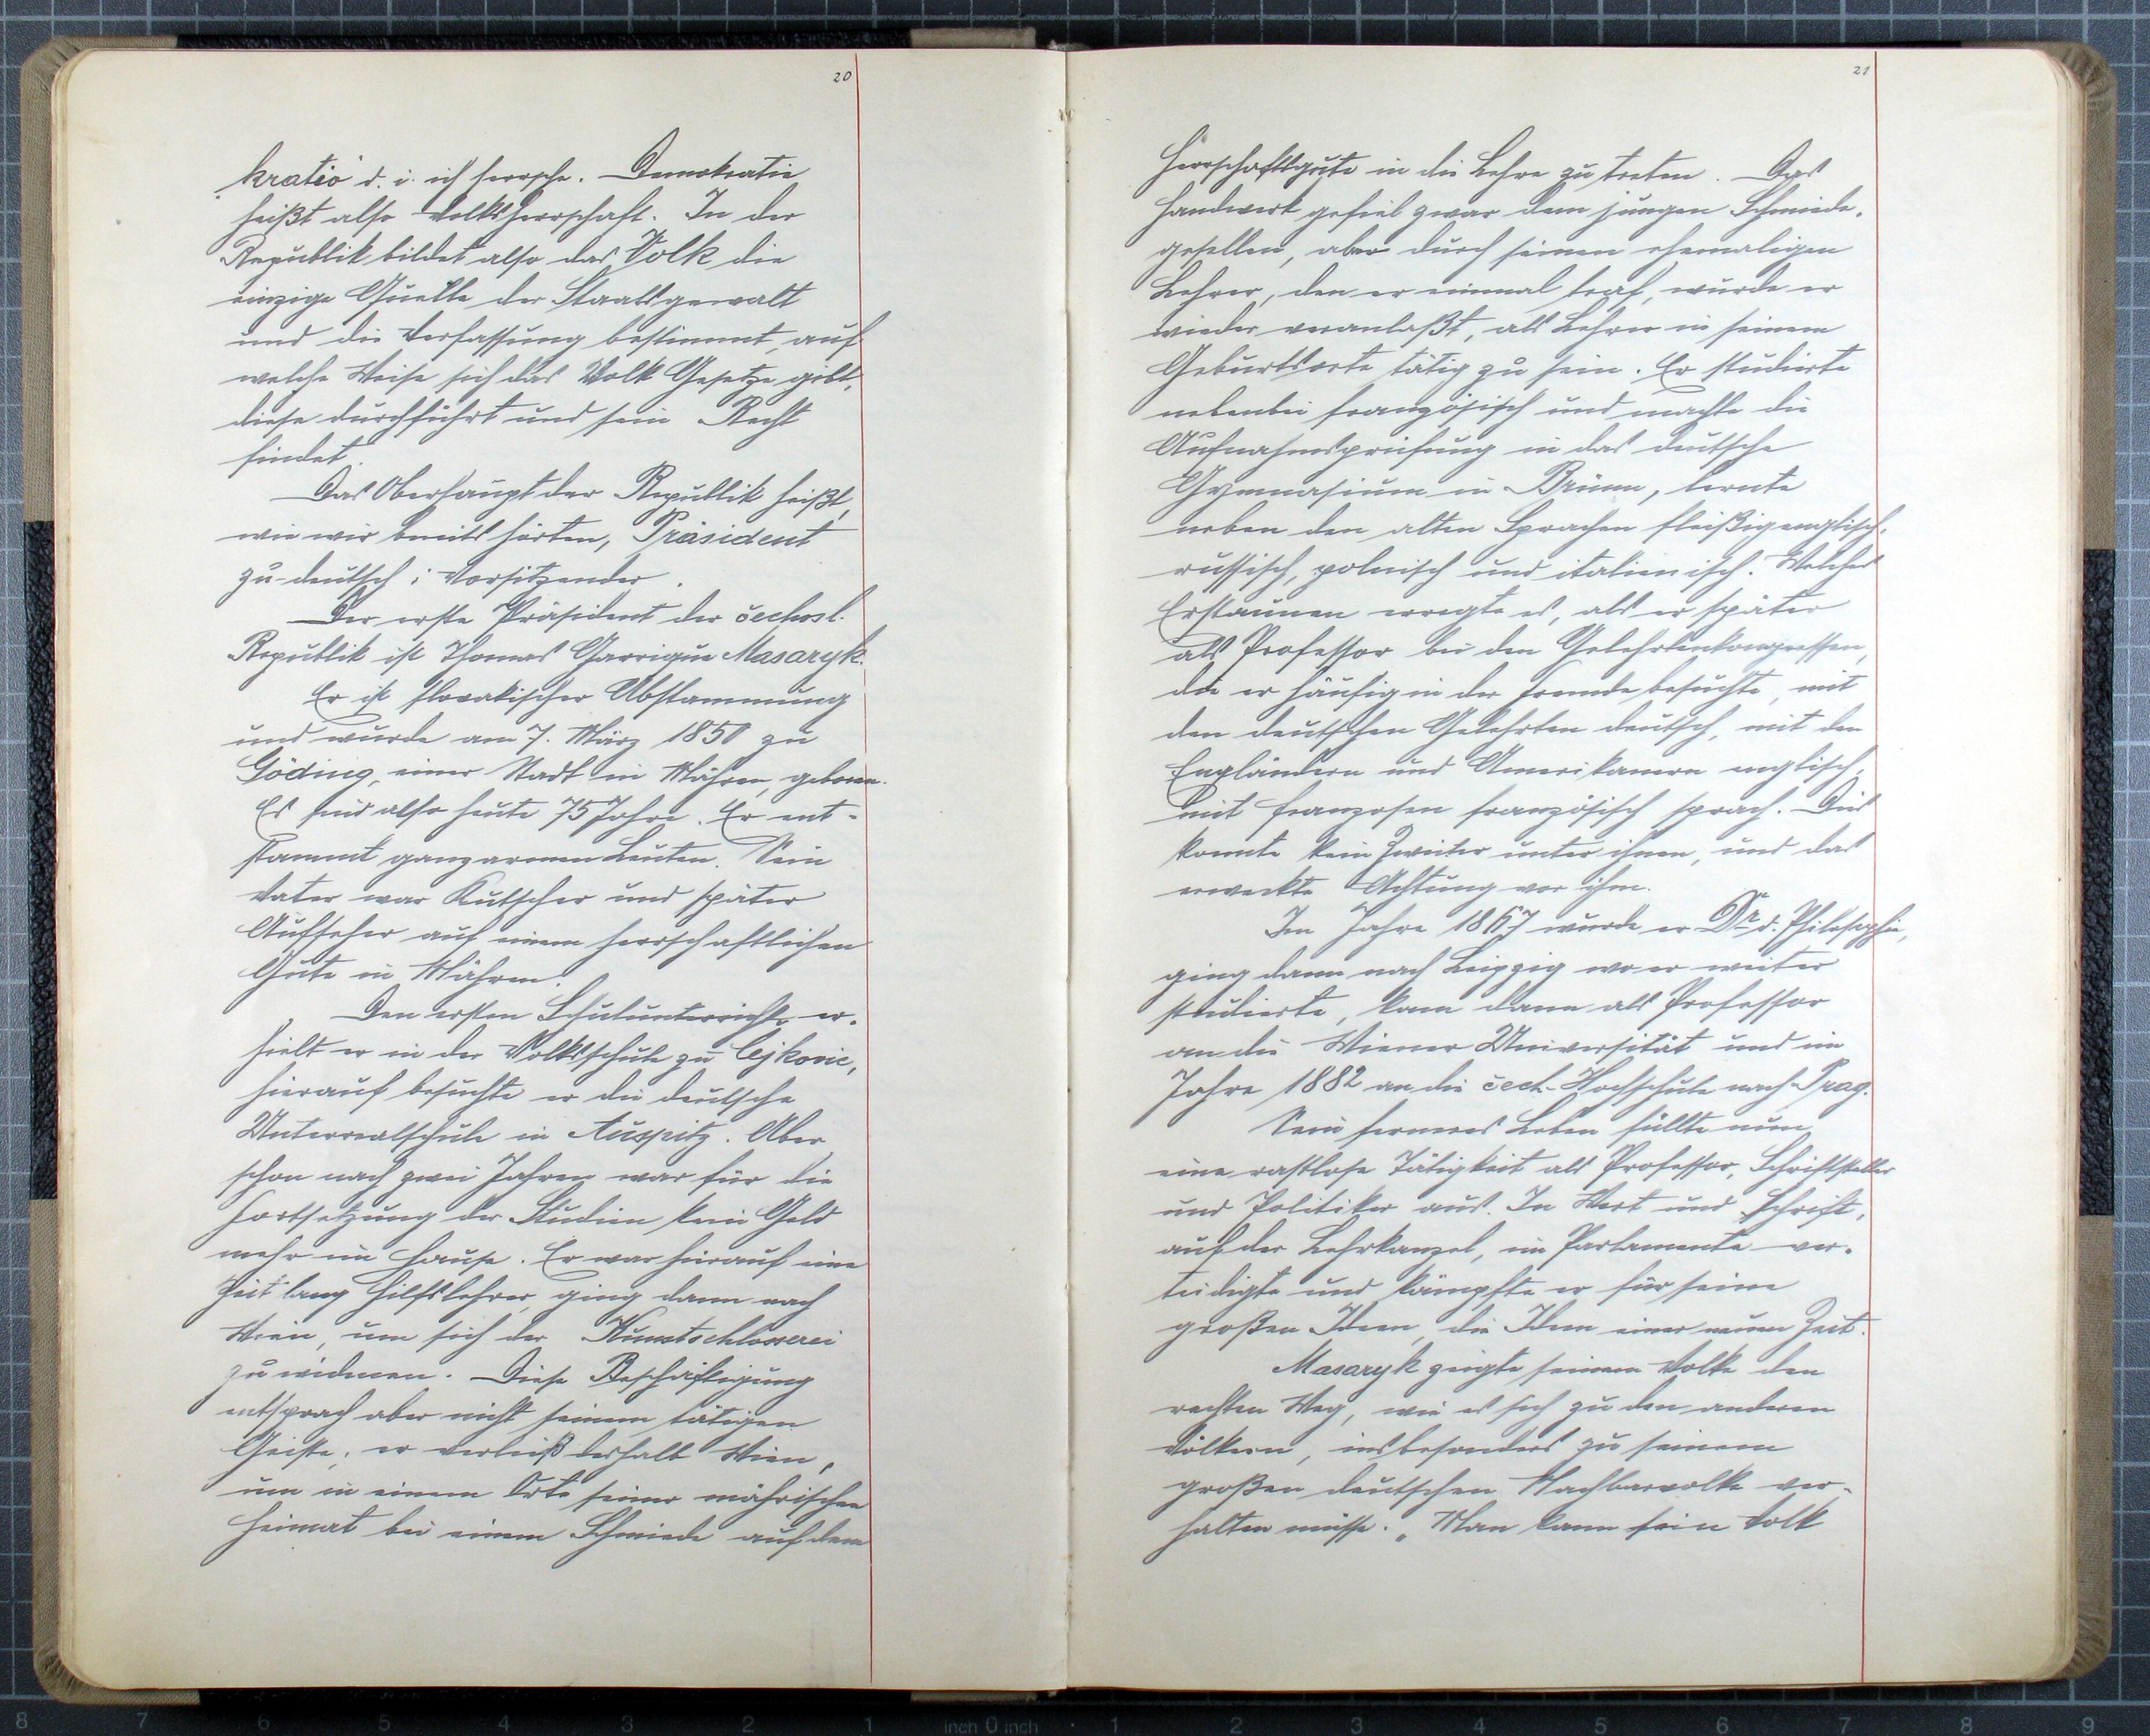 20
kratió d. i. ich herrsche. Demokratie
heißt also Volksherrschaft. In der
Republik bildet also das Volk die
einzige Quelle der Staatsgewalt
und die Verfassung bestimmt, auf
welche Weise sich das Volk Gesetze gibt,
diese durchführt und sein Recht
findet.
Das Oberhaupt der Republik heißt,
wie wir bereits hörten, Präsident
zu deutsch: Vorsitzender.
Der erste Präsident der čechosl.
Republik ist Thomas Garrigue Masaryk.
Er ist slovakischer Abstammung
und wurde am 7. März 1850 zu
Göding, einer Stadt in Mähren, geboren.
Es sind also heute 75 Jahre. Er ent-
stammt ganz armen Leuten. Sein
Vater war Kutscher und später
Aufseher auf einem herrschaftlichen
Gute in Mähren.
Den ersten Schulunterricht er-
hielt er in der Volksschule zu Cejkovic,
hierauf besuchte er die deutsche
Unterrealschule in Auspitz. Aber
schon nach zwei Jahren war für die
Fortsetzung der Studien kein Geld
mehr im Hause. Er war hierauf eine
Zeit lang Hilfslehrer, ging dann nach
Wien, um sich der Kunstschlosserei
zu widmen. Diese Beschäftigung
entsprach aber nicht seinem tätigen
Geiste; er verließ deshalb Wien,
um in einem Orte seiner mährischen
Heimat bei einem Schmiede auf dem
21
Herrschaftsgute in die Lehre zu treten. Das
Handwerk gefiel zwar dem jungen Schmiede-
gesellen, aber durch seinen ehemaligen
Lehrer, den er einmal traf, wurde er
wieder veranlaßt, als Lehrer in seinem
Geburtsorte tätig zu sein. Er studierte
nebenbei französisch und machte die
Aufnahmsprüfung in das deutsche
Gymnasium in Brünn, lernte
neben den alten Sprachen fleißig englisch,
russisch, polnisch und italienisch. Welches
Erstaunen erregte es, als er später
als Professor bei den Gelehrtenkongressen,
die er häufig in der Fremde besuchte, mit
den deutschen Gelehrten deutsch, mit den
Engländern und Amerikanern englisch,
mit Franzosen französisch sprach. Dies
konnte kein Zweiter unter ihnen, und das
erweckte Achtung vor ihm.
Im Jahre 1867 wurde er Dr. d. Philosophie,
ging dann nach Leipzig wo er weiter
studierte, kam dann als Professor
an die Wiener Universität und im
Jahre 1882 an die čech. Hochschule nach Prag.
Sein ferneres Leben füllte nun
eine rastlose Tätigkeit als Professor, Schriftsteller
und Politiker aus. In Wort und Schrift,
auf der Lehrkanzel, im Parlamente ver-
teidigte und kämpfte er für seine
großen Ideen, die Ideen einer neuen Zeit.
Masaryk zeigte seinem Volke den
rechten Weg, wie es sich zu den anderen
Völkern, insbesonders zu seinem
großen deutschen Nachbarvolke ver-
halten müsse. „Man kann sein Volk